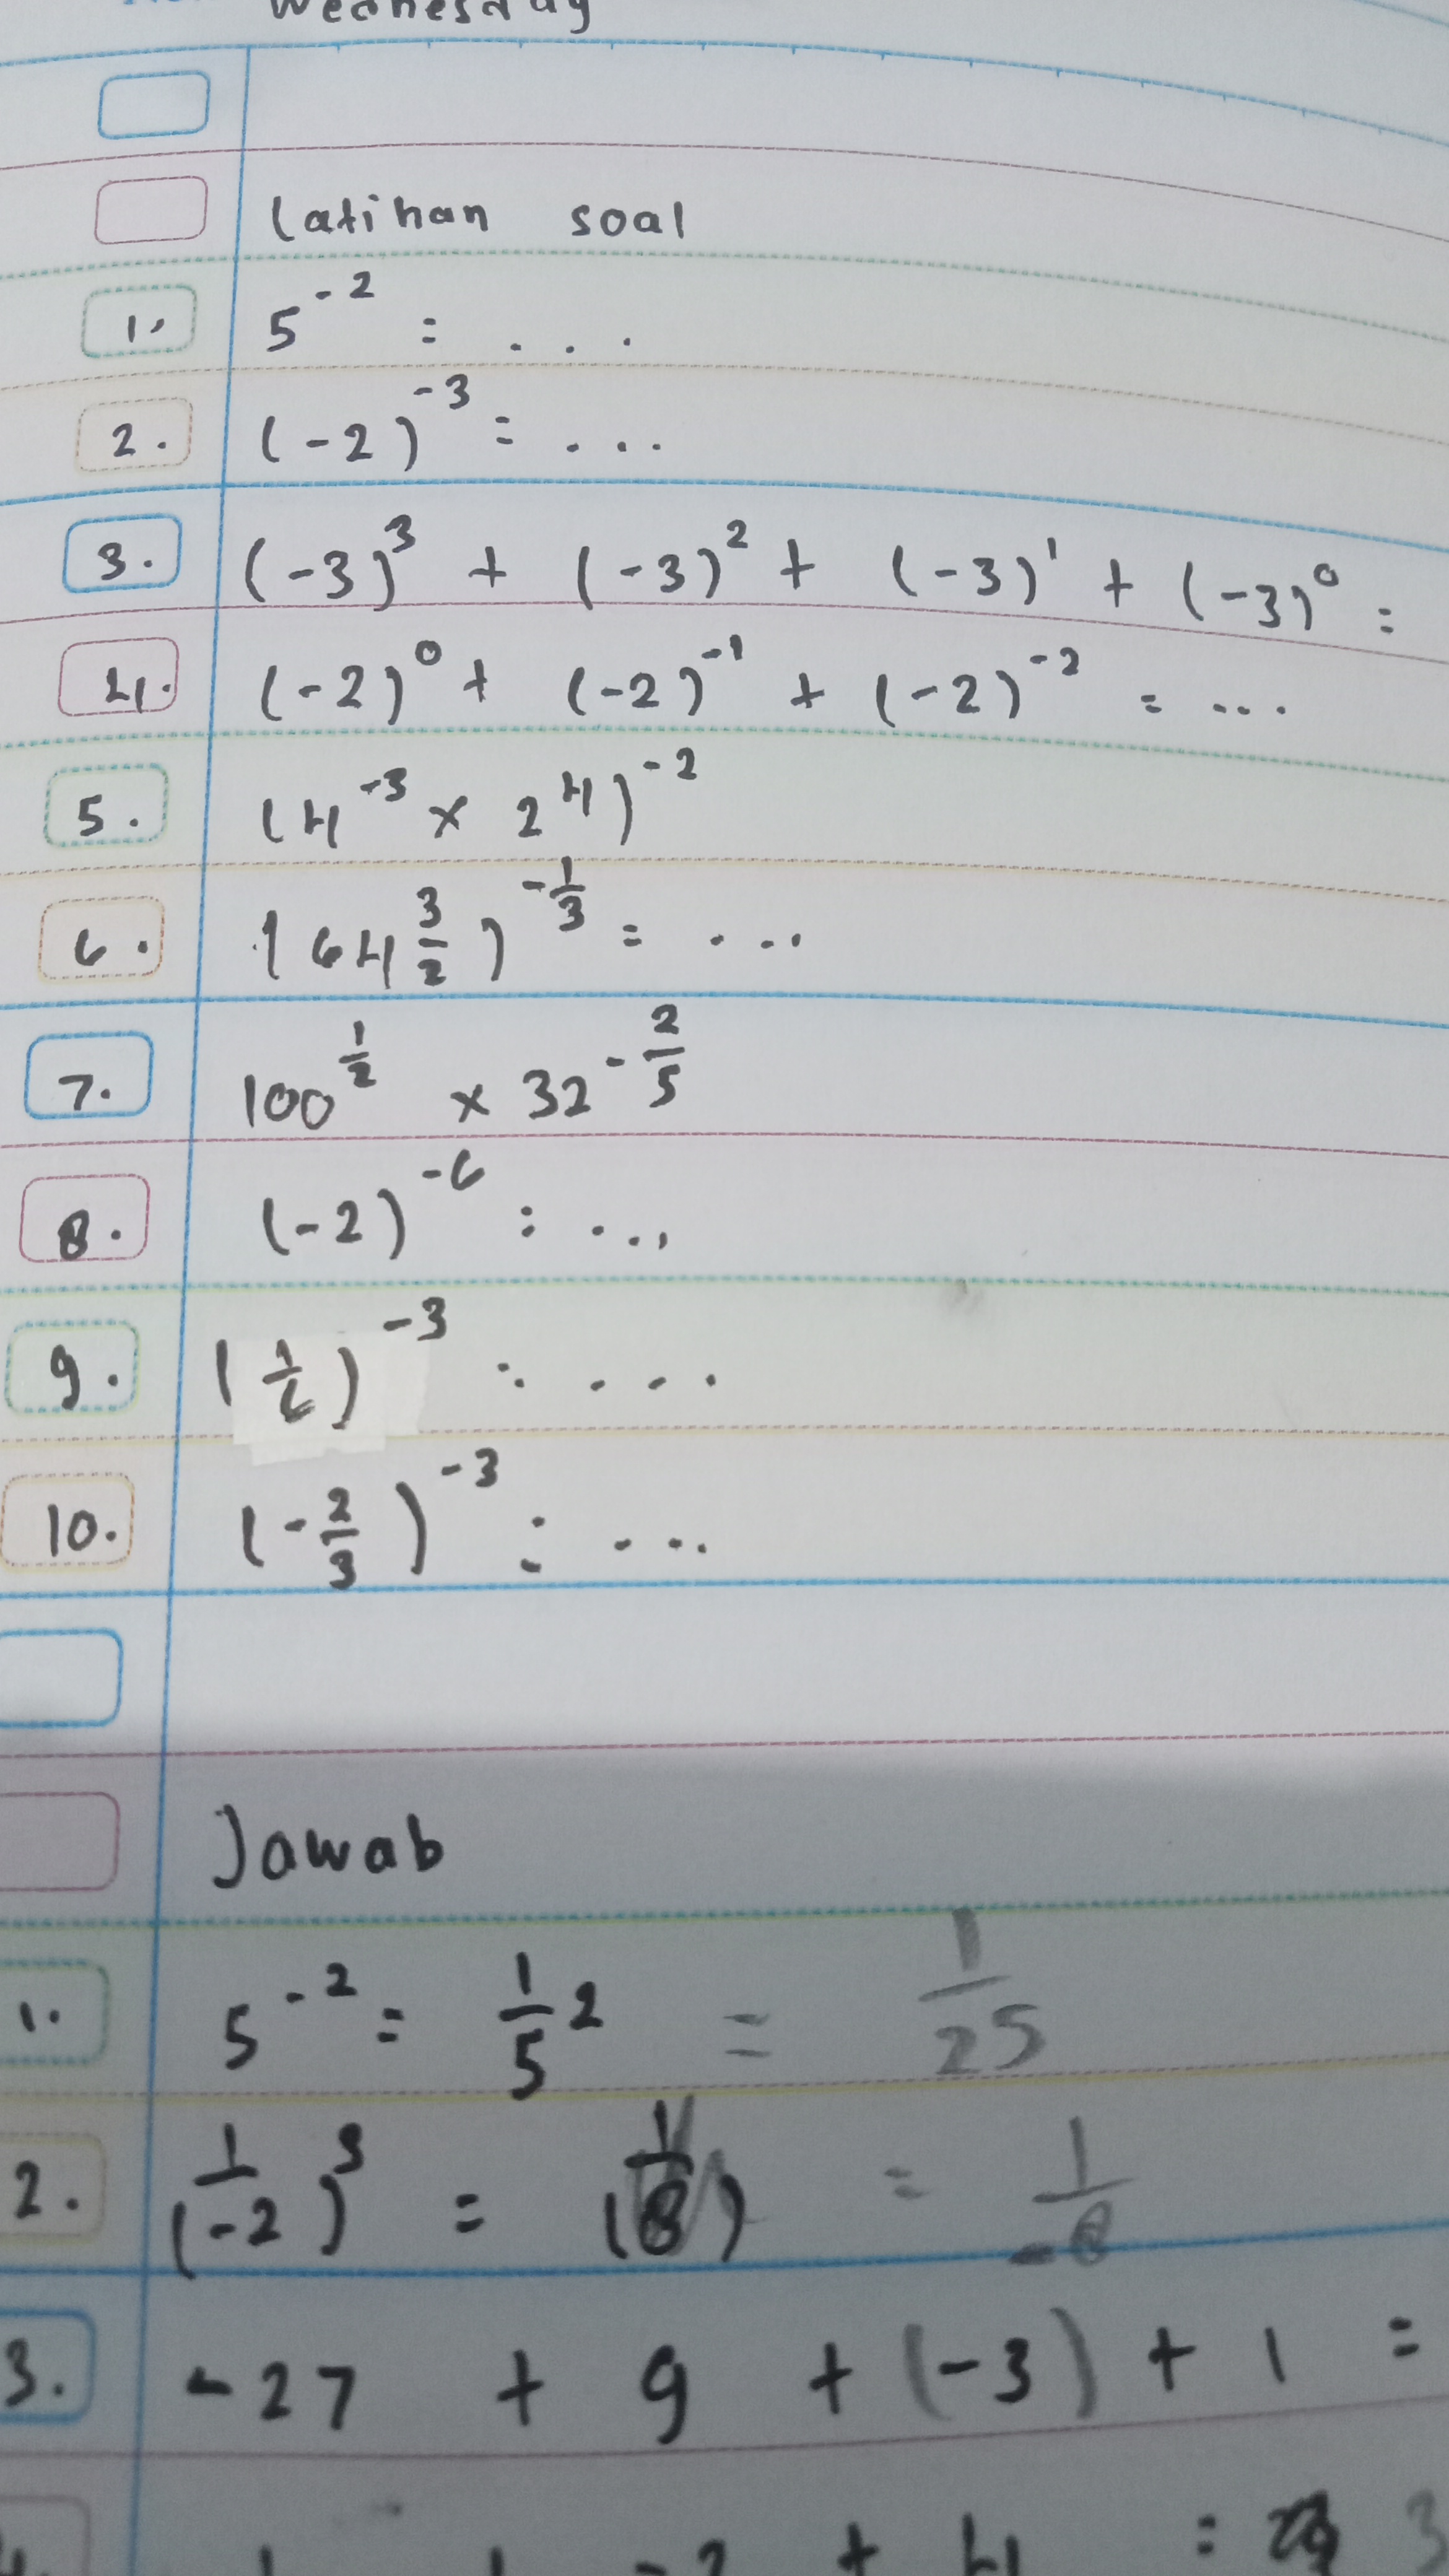 Wednesday
Latihan soal
1. 5^-2 = ...
2. (-2)^-3 = ...
3. (-3)^3 + (-3)^2 + (-3)^1 + (-3)^0 =
4. (-2)^0 + (-2)^-1 + (-2)^-2 = ...
5. (4^-3 × 2^4)^-2
6. (64^3/2)^-1/3 = ...
7. 100^1/2 × 32^-2/5
8. (-2)^-6 = ...
9. (1/6)^-3 = ....
10. (-2/3)^-3 = ...
Jawab
1. 5^-2 = 1/5^2 = 1/25
2. 1/(-2)^3 = (1/8) = 1/-8
3. -27 + 9 + (-3) + 1 =